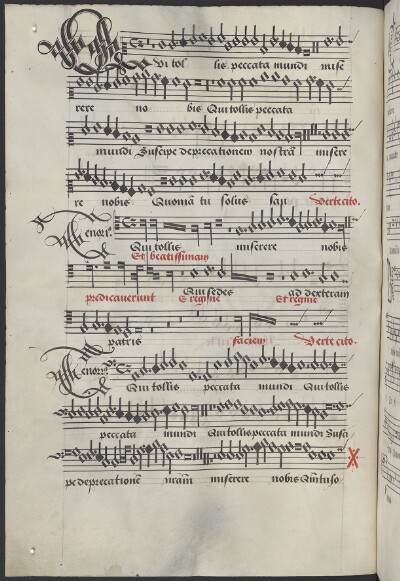 Qui tollis peccata mundi mise
rere nobis Qui tollis peccata
mundi Suscipe deprecationem nostrā misere
re nobis Quoniā tu solus san Verte cito.
Tenor
Qui tollis miserere nobis
Et beatissimam
Qui sedes ad dexteram
predicauerunt E regine Et regine
patris faciem Verte cito.
Tenor
Qui tollis peccata mundi Qui tollis
peccata mundi Qui tollis peccata mundi Susci
pe deprecationē nrām miserere nobis Qm̄ tu so